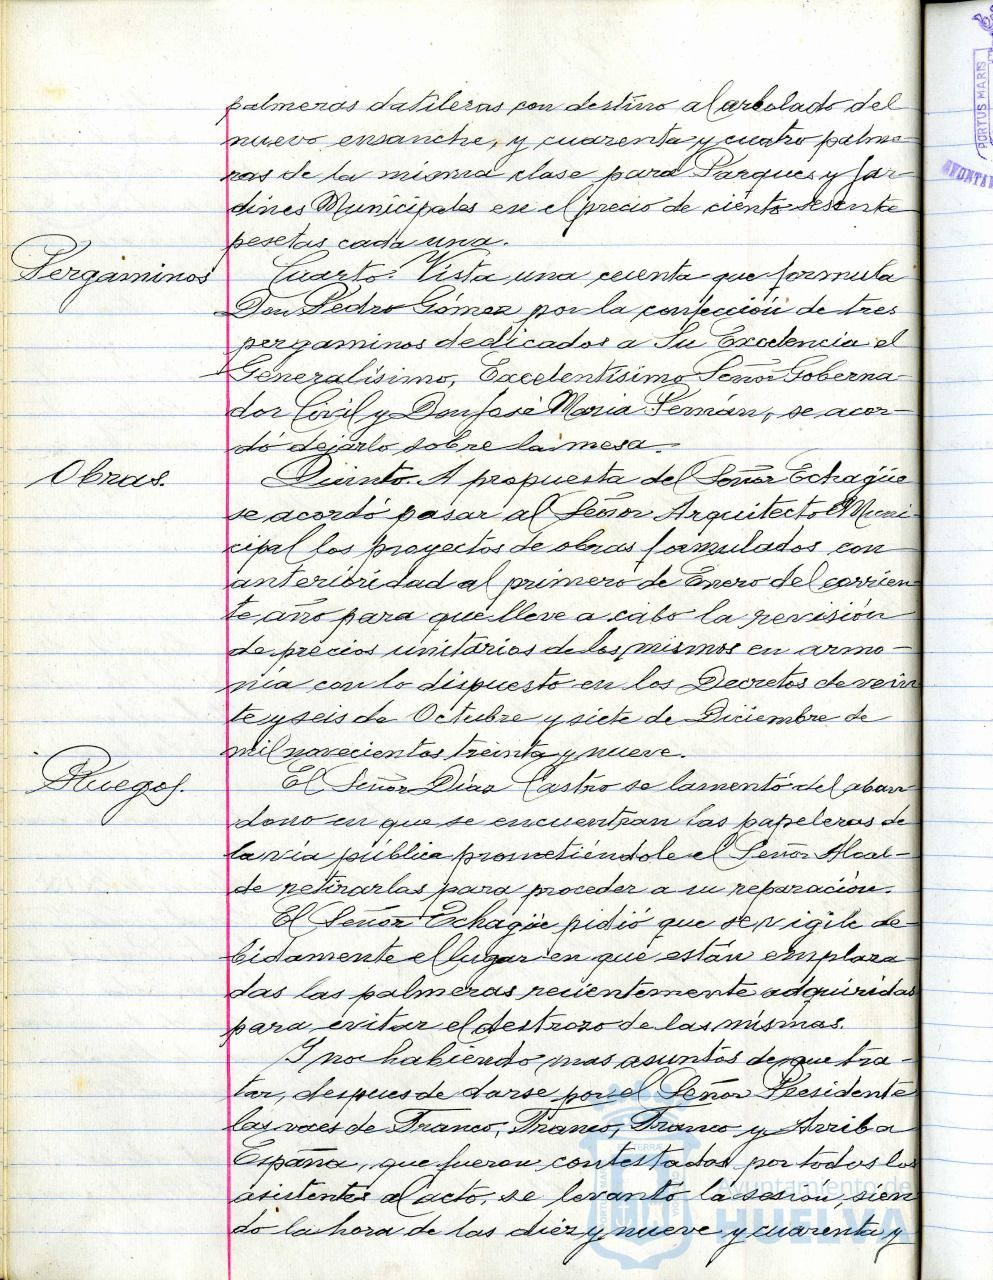 palmeras datileras con destino al arbolado del
nuevo ensanche, y cuarenta y cuatro palme-
ras de la misma clase para Parques y Jar-
dines Municipales en el precio de ciento sesenta
pesetas cada una.
Pergaminos
Cuarto. Vista una cuenta que formula
Don Pedro Gómez por la confección de tres
pergaminos dedicados a Su Excelencia el
Generalísimo, Excelentísimo Señor Goberna-
dor Civil y Don José Maria Pemán, se acor-
dó dejarlo sobre la mesa.
Obras.
Quinto. A propuesta del Señor Echagüe
se acordó pasar al Señor Arquitecto Muni-
cipal los proyectos de obras formulados con
anterioridad al primero de Enero del corrien-
te año para que lleve a cabo la revisión
de precios unitarios de los mismos en armo-
nía con lo dispuesto en los Decretos de vein-
te y seis de Octubre y siete de Diciembre de
mil novecientos treinta y nueve.
Ruegos.
El Señor Díaz Castro se lamentó del aban-
dono en que se encuentran las papeleras de
la vía pública prometiéndole el Señor Alcal-
de retirarlas para proceder a su reparación.
El Señor Echagüe pidió que se vigile de-
bidamente el lugar en que están emplaza-
das las palmeras recientemente adquiridas
para evitar el destrozo de las mismas.
Y no habiendo mas asuntos de que tra-
tar, despues de darse por el Señor Presidente
las voces de Franco, Franco, Franco y Arriba
España, que fueron contestadas por todos los
asistentes al acto, se levantó la sesion, sien
do la hora de las diez y nueve y cuarenta y
Ayuntamiento de
HUELVA
PORTUS MARIS
AYUNTA